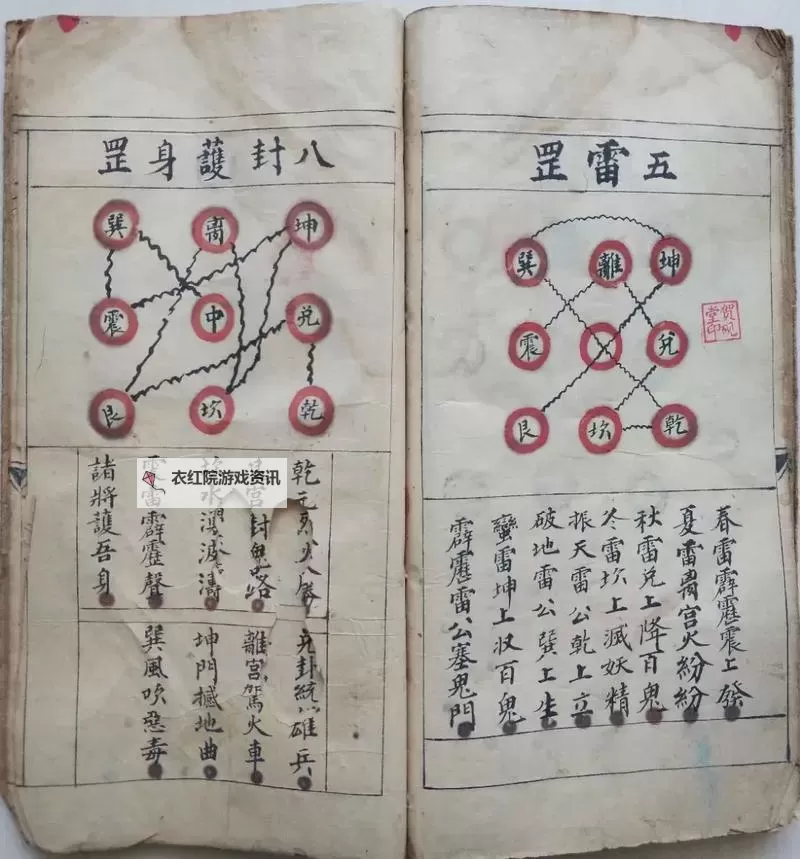 五雷罡
巽 離 坤
震 兌
艮 坎 乾
春雷霹靂震上發
夏雷离宮火紛紛
秋雷兌上降百鬼
冬雷坎上滅妖精
振天雷公乾上立
破地雷公巽上生
蠻雷坤上収百鬼
霹靂雷公塞鬼門
堂印
八封護身罡
巽 离 坤
震 中 兌
艮 坎 乾
乾元
兌卦統雄兵
宮封鬼路
離宮駕火車
坎水湧波濤
坤門撼地曲
震雷霹靂聲
巽風吹惡毒
諸將護吾身
衣红院游戏资讯